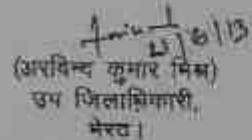 (अरविन्द कुमार मिश्र)
उप जिलाधिकारी,
मेरठ।